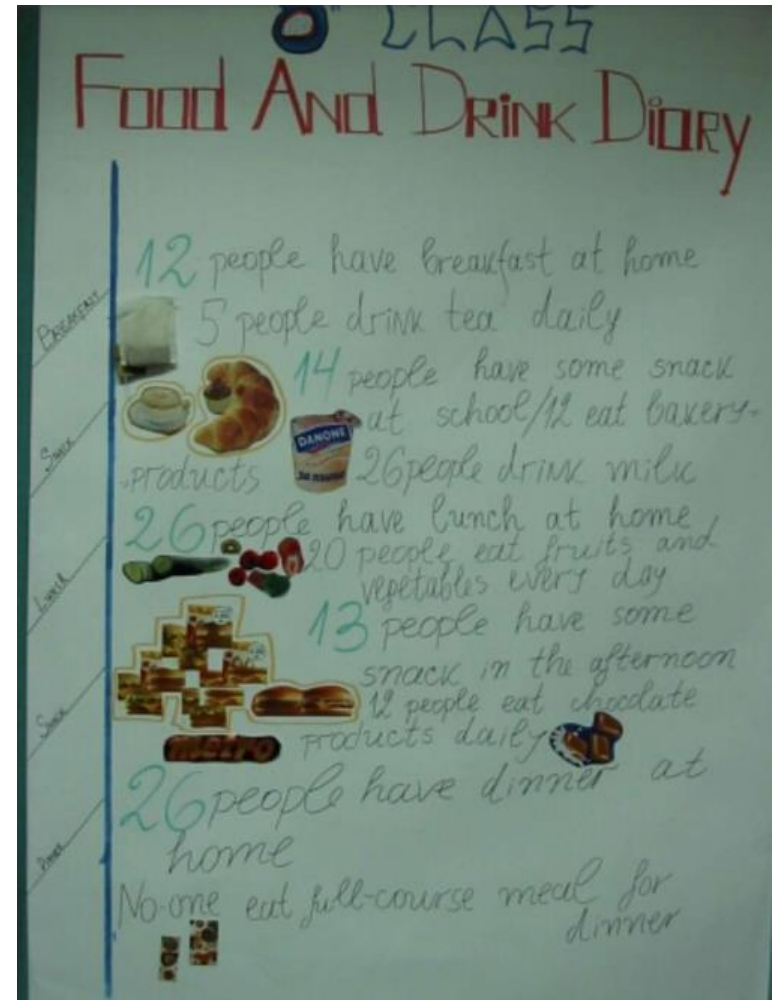 8th CLASS
Food And Drink Diary
BREAKFAST
12 people have breakfast at home
5 people drink tea daily
SNACK
14 people have some snack
at school/12 eat bakery-
products
DANONE
26 people drink milk
LUNCH
26 people have lunch at home
20 people eat fruits and
vegetables every day
SNACK
13 people have some
snack in the afternoon
12 people eat chocolate
products daily
DINNER
26 people have dinner at
home
No-one eat full-course meal for
dinner